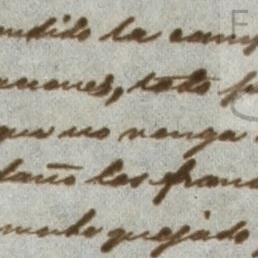 endido la camp
aciones, todo
que no venga
daño los franc
mente quejado